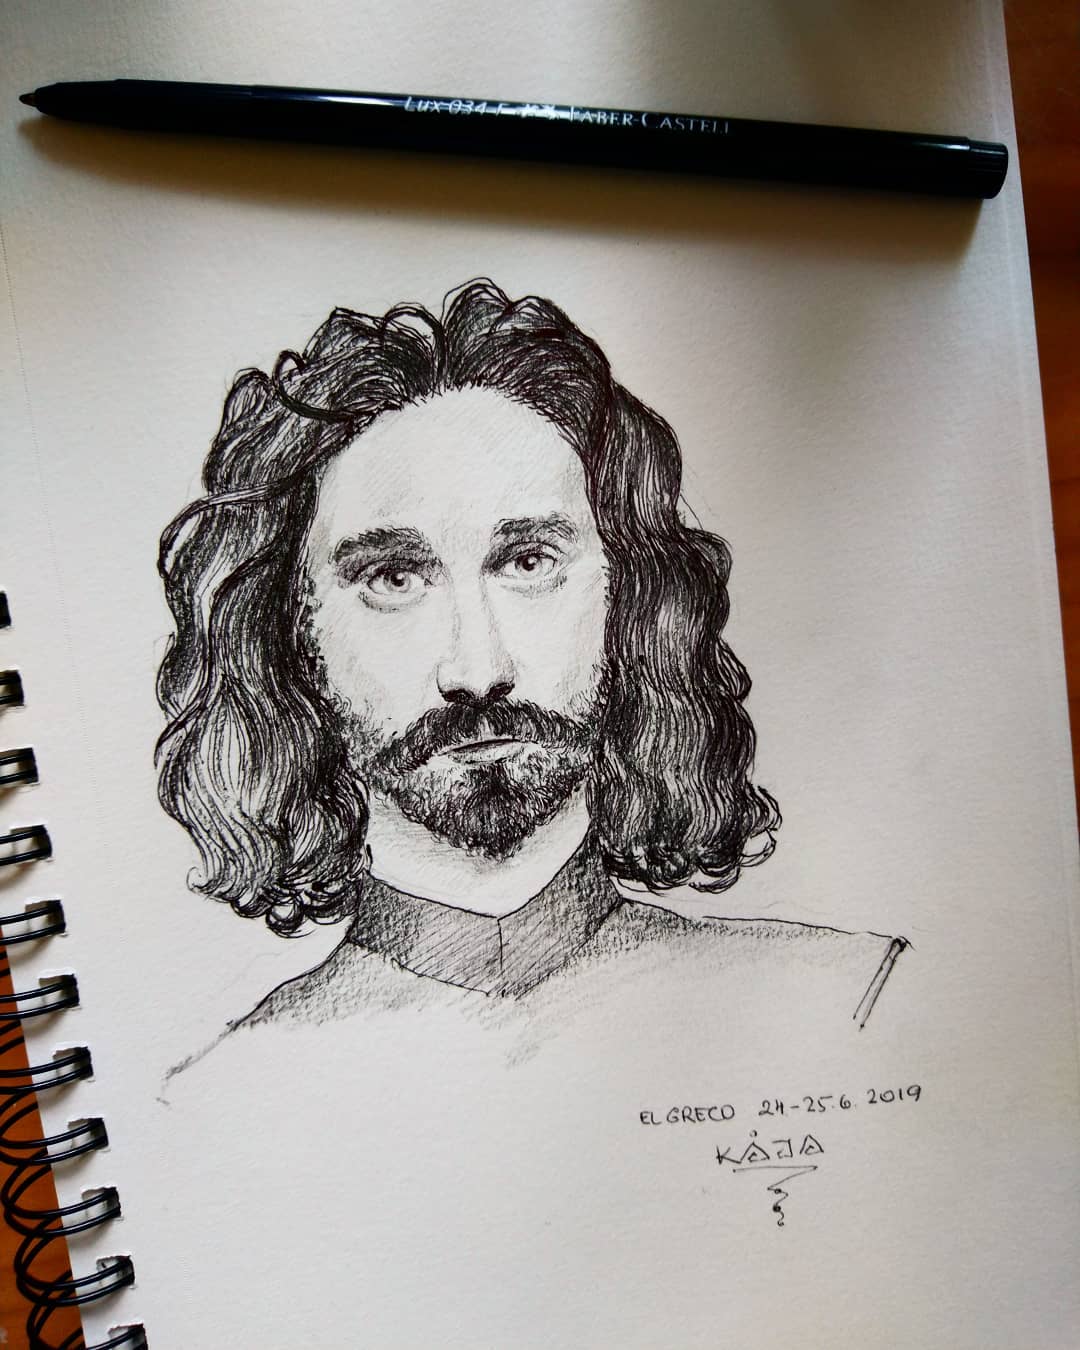 Lux 034 F FABER-CASTELL
EL GRECO 24.-25.6. 2019
KÅJA